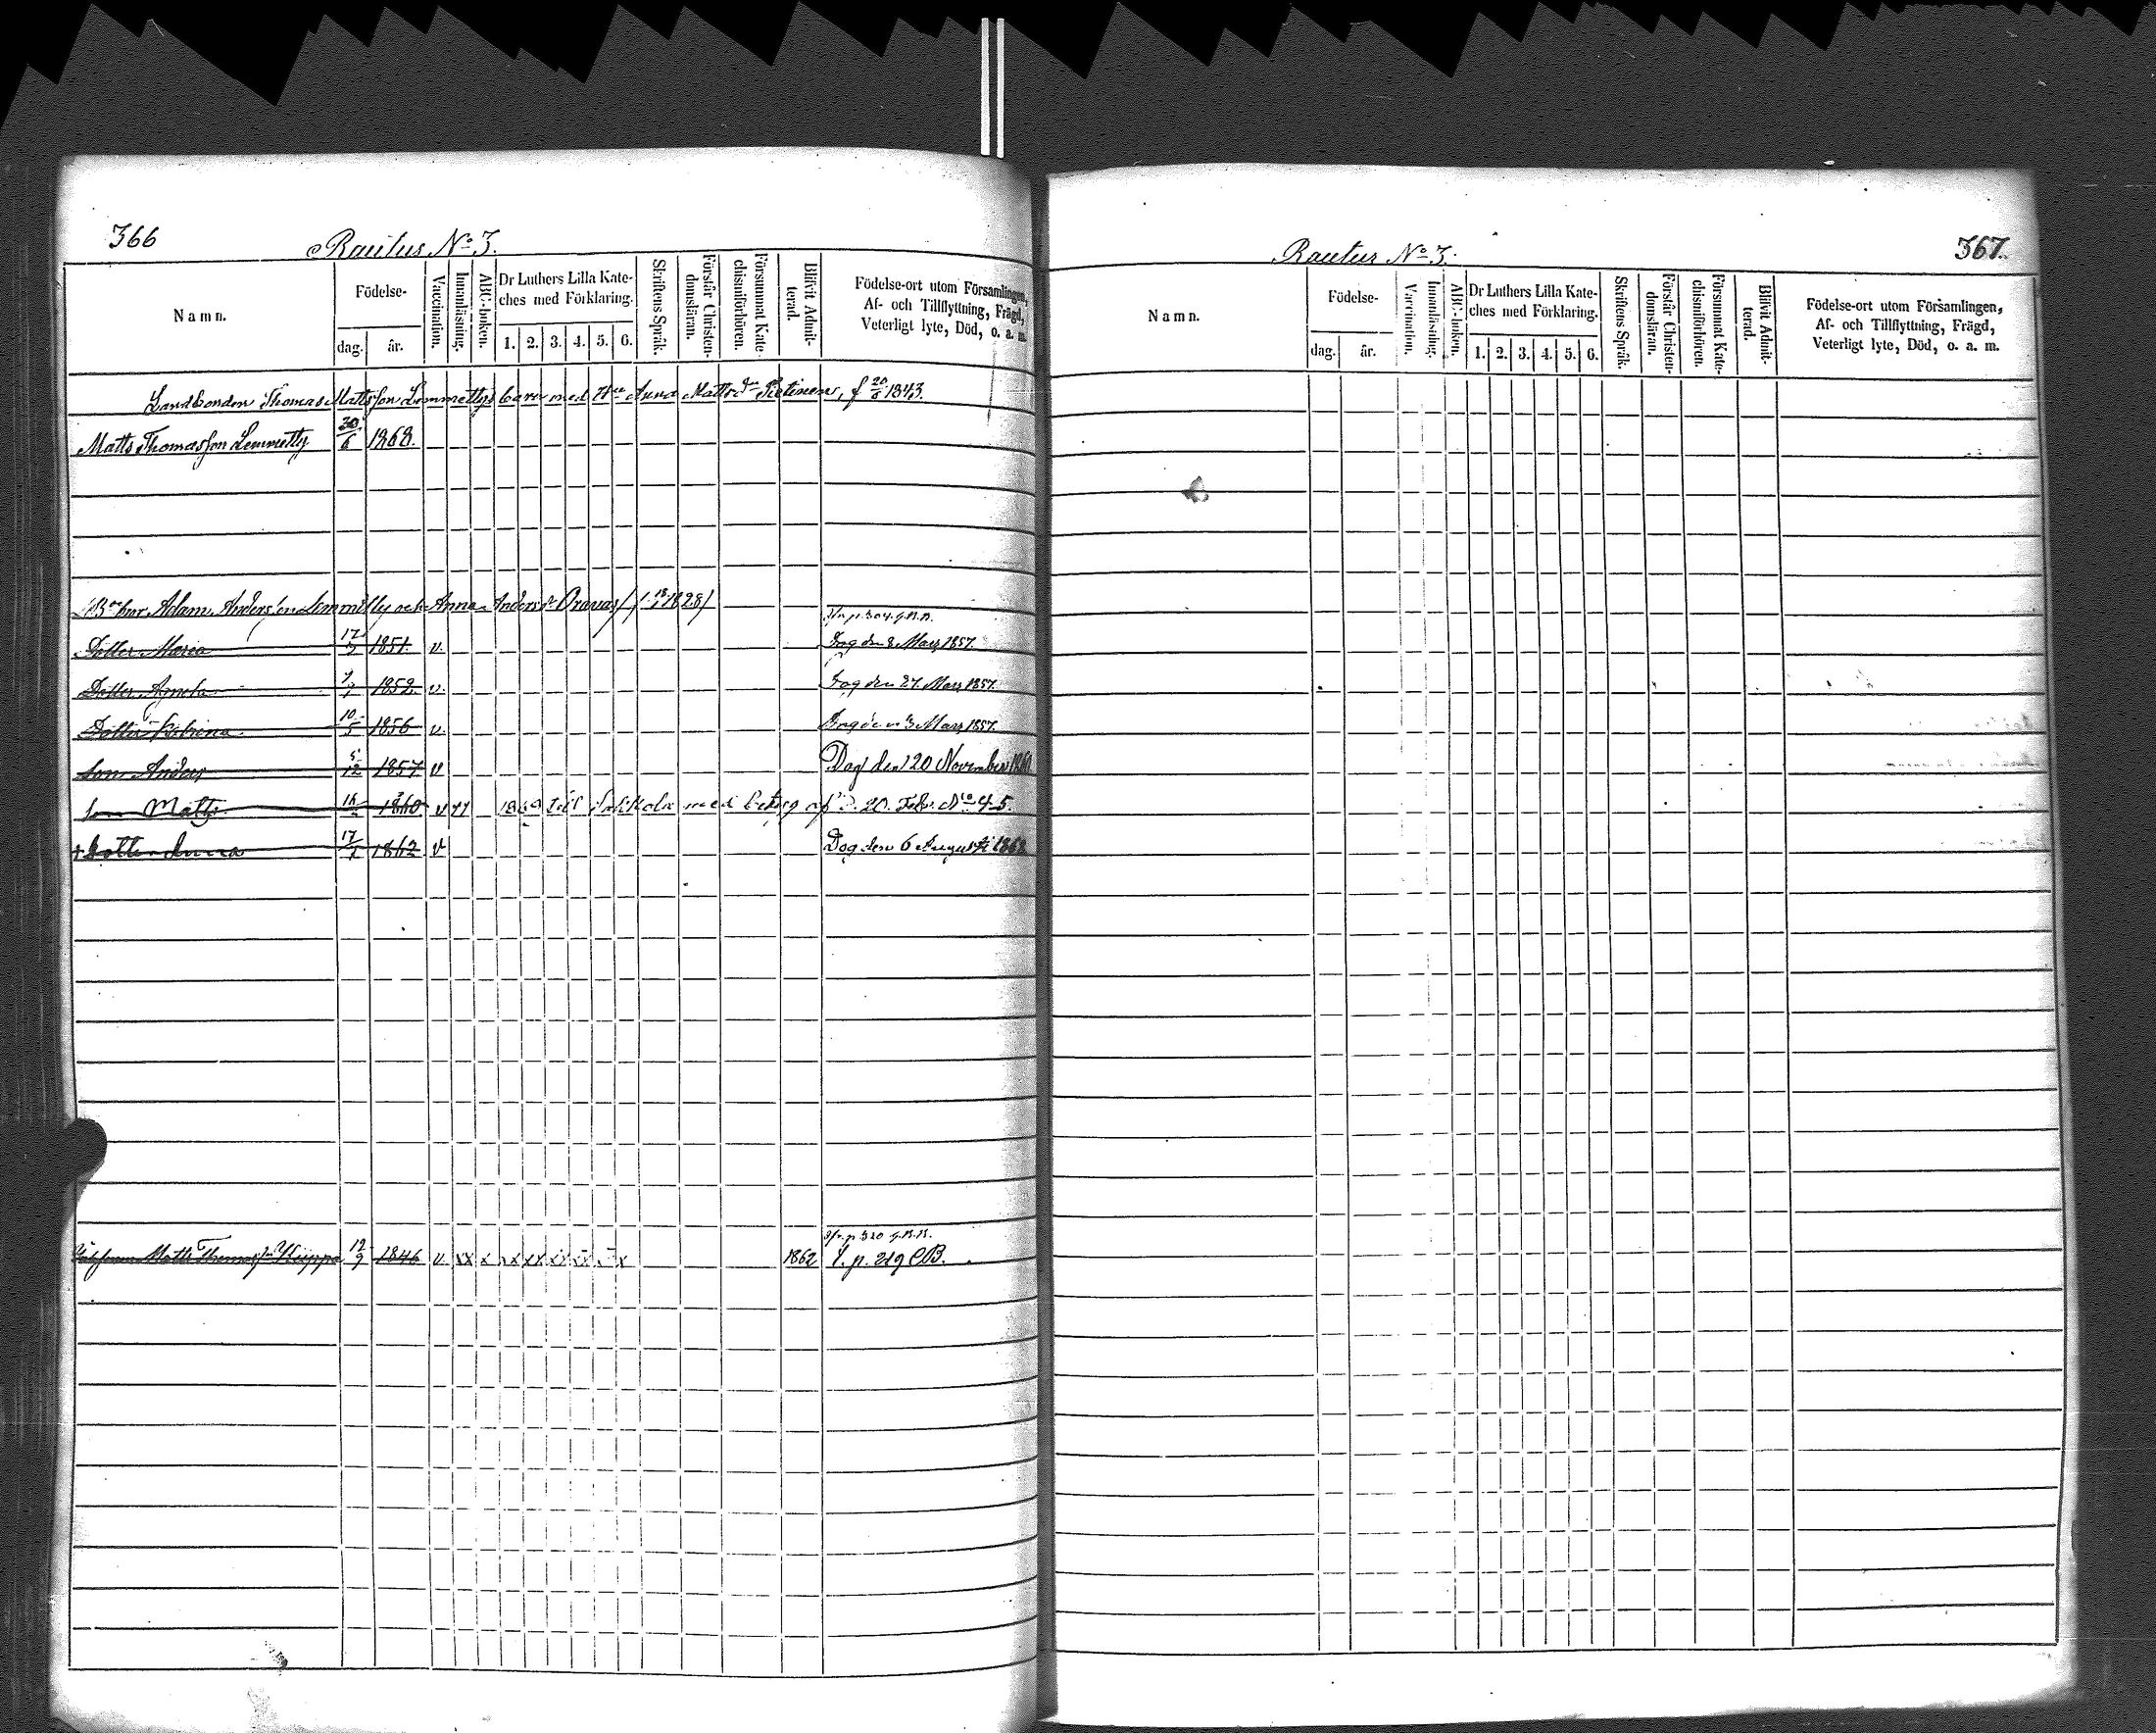 366
Rautus No 3.
Namn.
Födelse-
dag. år.
Vaccination.
Innanläsning.
ABC-boken.
Dr Luthers Lilla Kate-
ches med Förklaring.
1. 2. 3. 4. 5. 6.
Skriftens Språk.
Förstår Christen-
domsläran.
Försummat Kate-
chismiförhören.
Blifvit Admit-
terad.
Födelse-ort utom Församlingen,
Af- och Tillflyttning, Frägd,
Veterligt lyte, Död, o. a. m.
Landbonden Thomas Mattsson Lemmettys barn med Anna Matts Pietinen, f 20/6 1843.
Matts Thomasson Lemmetty 30/6 1868.
Adam Andersson Lemmetty och Anna Anders Oravas / 1828/
p. 304. g.K.B.
Dotter Maria 17 1851 v. Dog den 8 Mars 1857.
Dotter Agneta 1852 v. Dog den 27. Mars 1857.
Dotter Catrina 10/5 1856 v. Dog den 3 Mars 1857.
Son Anders 5/12 1857 v Dog den 20 November
Son Matts 16 1860 v 1869 till Sakkola med betyg af d. 20. Febr. No 45.
+ Dotter Anna 17 1862 v Dog den 6 Augusti 1868
p 320 g.K.B.
Matts Thomass. Kiuppa 12/9 1846 v. xx x xx xx xx xx x 1862 f. p. 219 CB.
Rautus No 3.
367.
Namn.
Födelse-
dag. år.
Vaccination.
Innanläsning.
ABC-boken.
Dr Luthers Lilla Kate-
ches med Förklaring.
1. 2. 3. 4. 5. 6.
Skriftens Språk.
Förstår Christen-
domsläran.
Försummat Kate-
chismiförhören.
Blifvit Admit-
terad.
Födelse-ort utom Församlingen,
Af- och Tillflyttning, Frägd,
Veterligt lyte, Död, o. a. m.